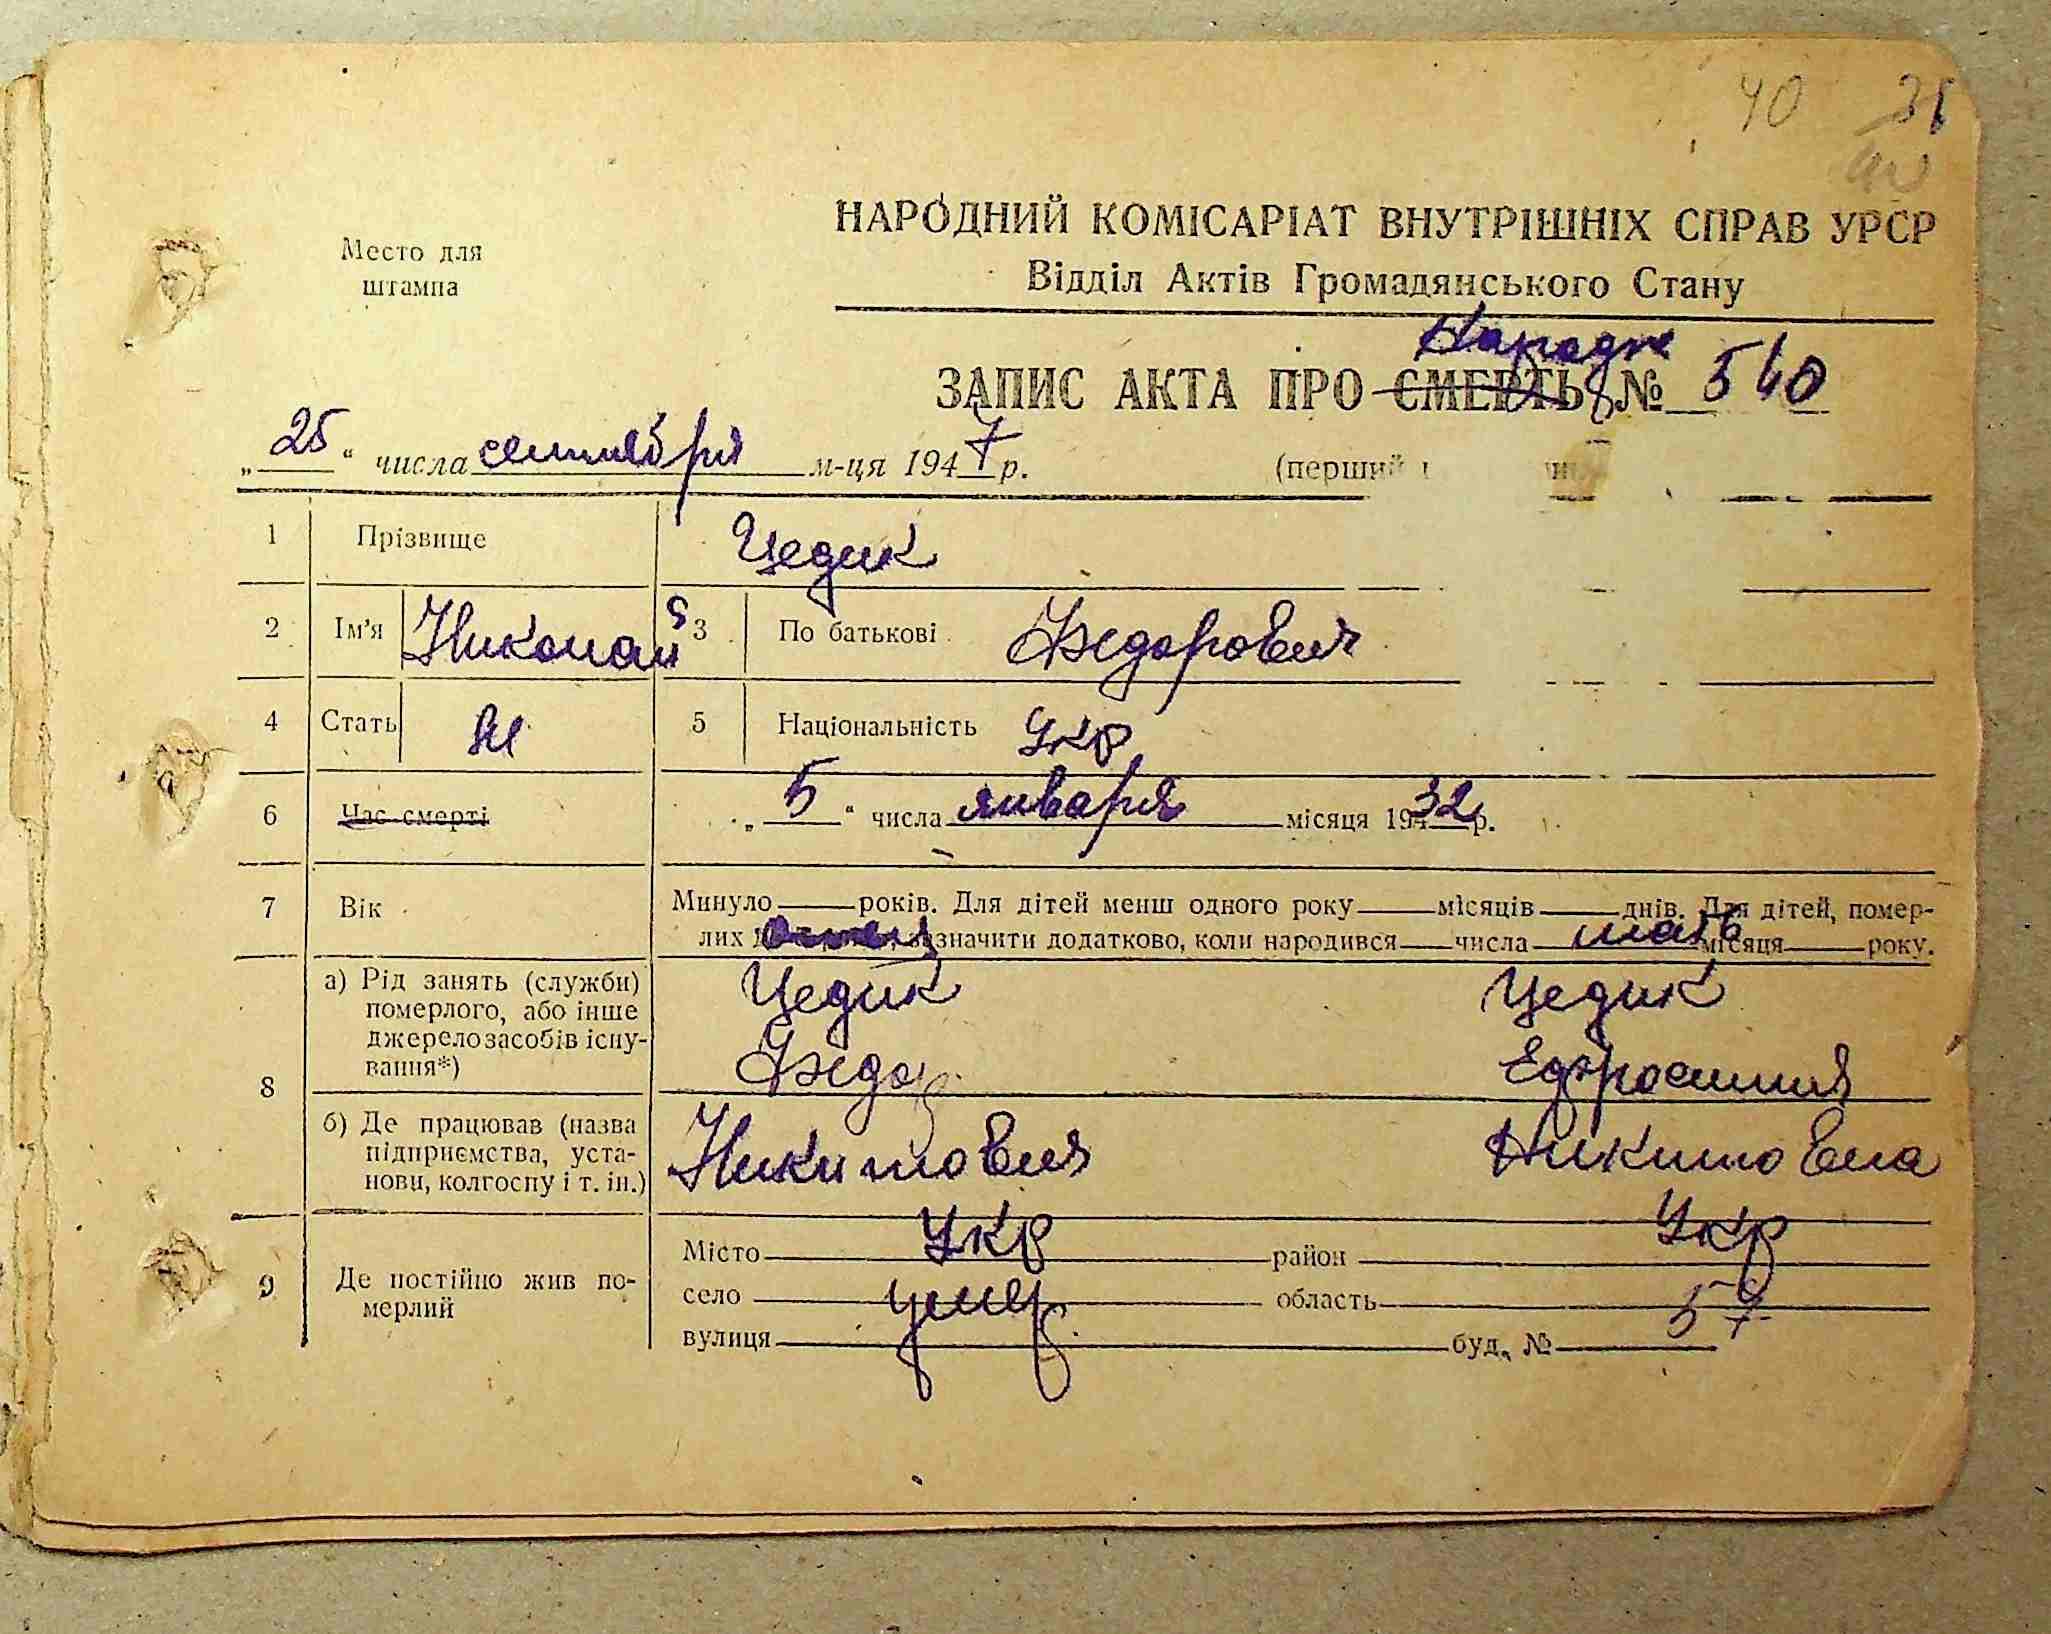 40 31
Место для
штампа
НАРОДНИЙ КОМІСАРІАТ ВНУТРІШНІХ СПРАВ УРСР
Відділ Актів Громадянського Стану
ЗАПИС АКТА ПРО СМЕРТЬ № 540
„25“ числа сентября м-ця 1947 р. (перший
1 Прізвище Цедик
2 Ім'я Николай 3 По батькові Федорович
4 Стать м 5 Національність Укр
6 Час смерті „5“ числа января місяця 19432 р.
7 Вік Минуло років. Для дітей менш одного року місяців днів. Для дітей, помер-
лих отец зазначити додатково, коли народився числа мать місяця року.
8 а) Рід занять (служби)
померлого, або інше
джерело засобів існу-
вання*)
Цедик Цедик
Федор Ефросиния
б) Де працював (назва
підприємства, уста-
нови, колгоспу і т. ін.)
Никитович Никитовна
9 Де постійно жив по-
мерлий
Місто Укр район Укр
село умер область
вулиця буд. № 57